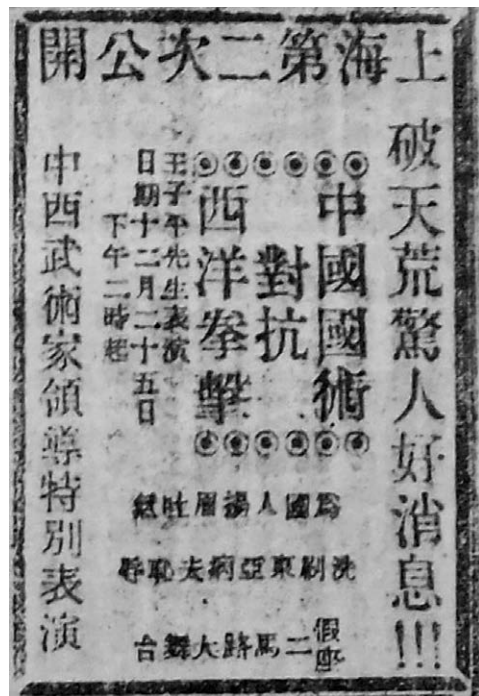 上海第二次公開
破天荒驚人好消息!!!
中國國術
對抗
西洋拳擊
王子平先生表演
日期十二月二十五日
下午二時起
爲國人揚眉吐氣
洗刷東亞病夫恥辱
假座二馬路大舞台
中西武術家領導特別表演